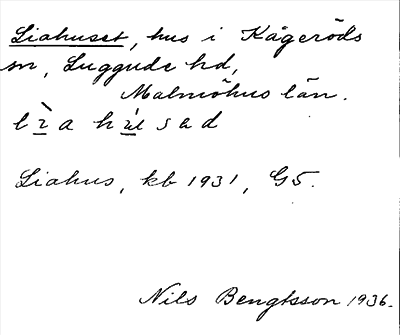 Liahuset, hus i Kågeröds
sn, Luggude hd,
Malmöhus län.
Liahus, kb 1931, G5.
Nils Bengtsson 1936.